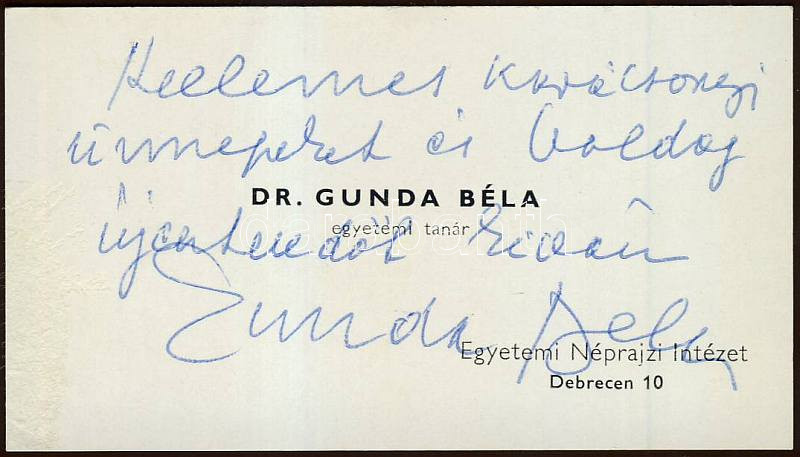 Kellemes karácsonyi
ünnepeket és boldog
DR. GUNDA BÉLA
egyetemi tanár
újesztendőt kíván
Gunda Béla
Egyetemi Néprajzi Intézet
Debrecen 10